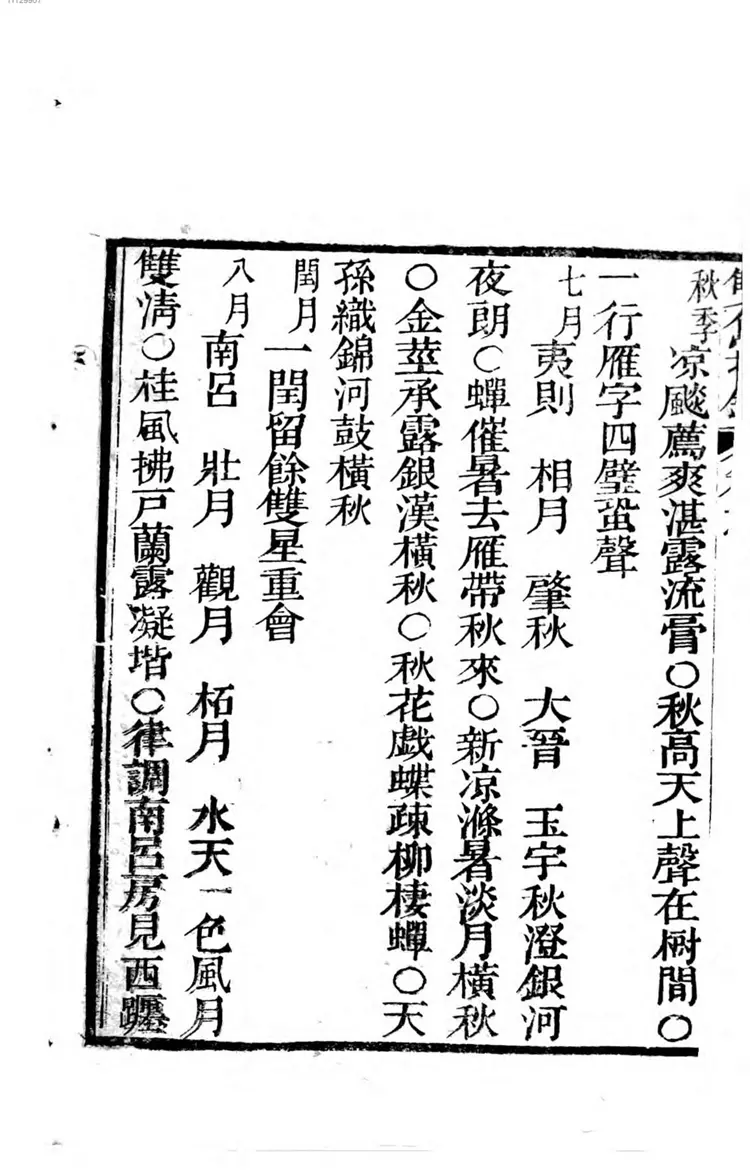 11129907
秋季凉飈薦爽湛露流膏○秋高天上聲在樹間○
一行雁字四壁蛩聲
七月夷則　相月　肇秋　大晉　玉宇秋澄銀河
夜朗○蟬催暑去雁帶秋來○新凉滌暑淡月橫秋
○金莖承露銀漢橫秋○秋花戲蝶疎柳棲蟬○天
孫織錦河鼓橫秋
閏月一閏留餘雙星重會
八月南呂　壯月　觀月　柘月　水天一色風月
雙清○桂風拂戶蘭露凝堦○律調南呂房見西躔